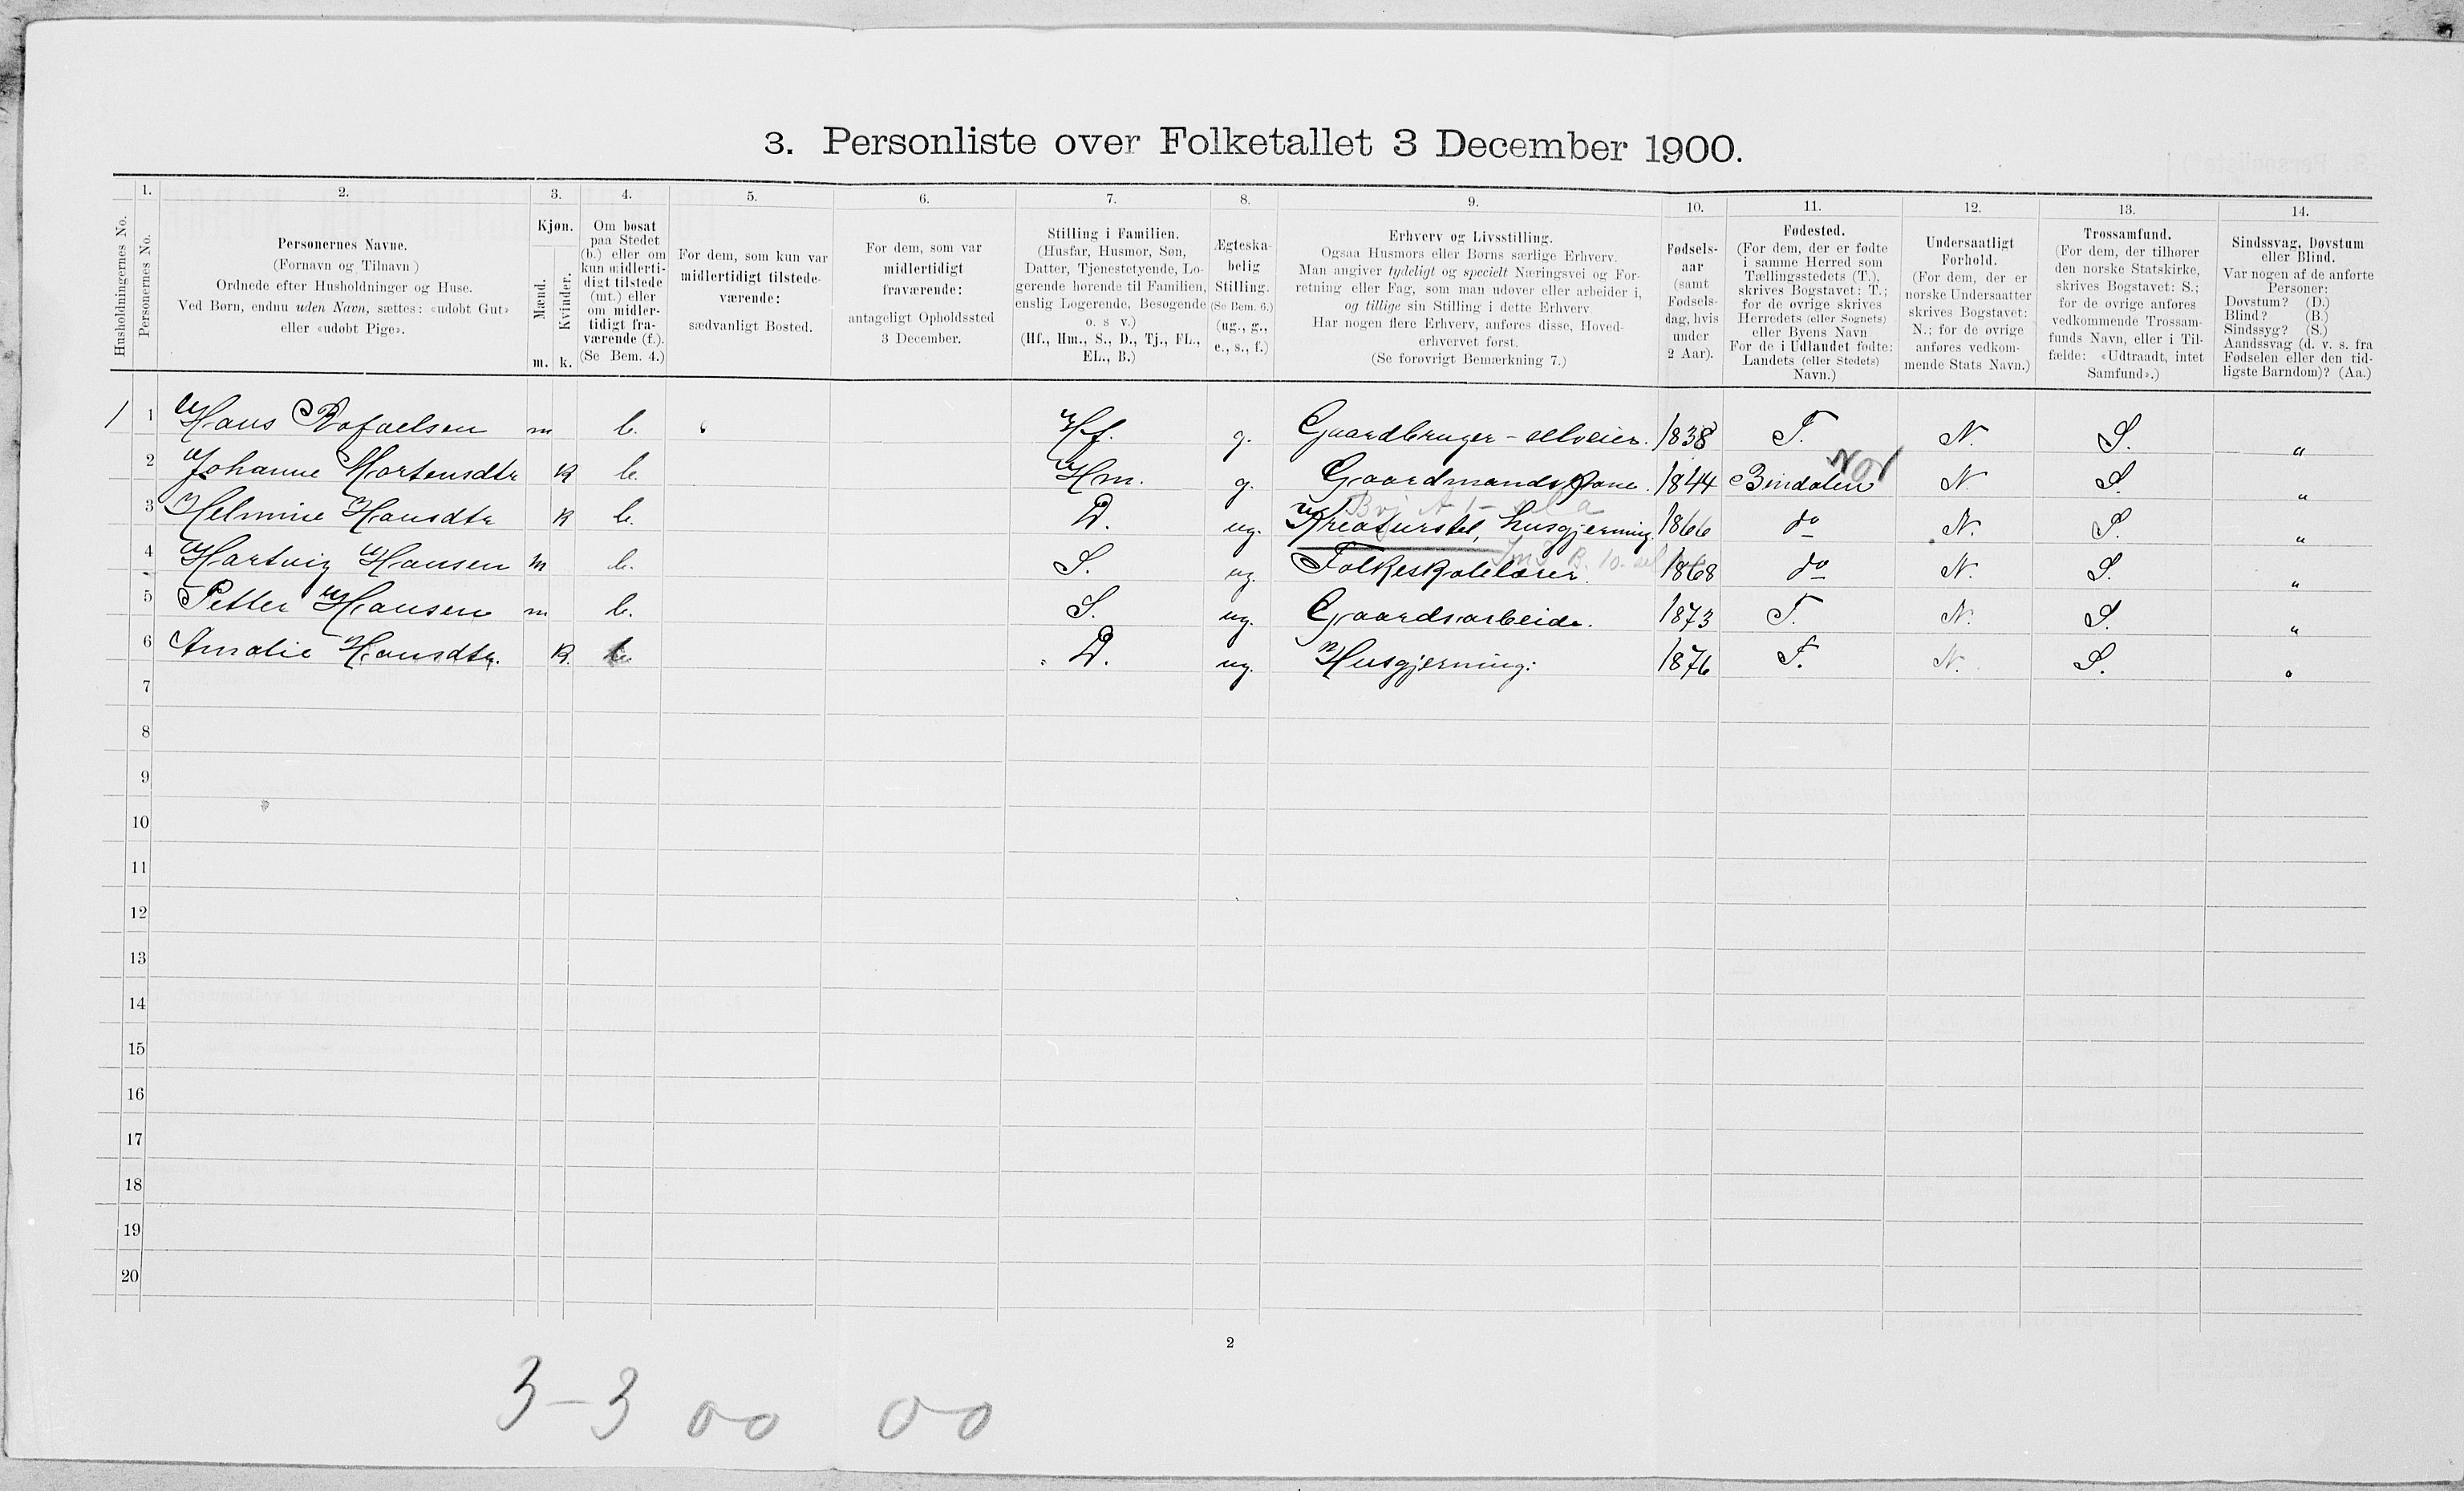 3. Personliste over Folketallet 3 December 1900.
1. 2. 3. 4. 5. 6. 7. 8. 9. 10. 11. 12. 13. 14.
Husholdningernes No.
Personernes No.
Personernes Navne.
(Fornavn og Tilnavn)
Ordnede efter Husholdninger og Huse.
Ved Børn, endnu uden Navn, sættes: «udøbt Gut»
eller «udøbt Pige».
Kjøn.
Mænd.
Kvinder.
m. k.
Om bosat
paa Stedet
(b.) eller om
kun midlerti-
digt tilstede
(mt.) eller
om midler-
tidigt fra-
værende (f.).
(Se Bem. 4.)
For dem, som kun var
midlertidigt tilstede-
værende:
sædvanligt Bosted.
For dem, som var
midlertidigt
fraværende:
antageligt Opholdssted
3 December.
Stilling i Familien.
(Husfar, Husmor, Søn,
Datter, Tjenestetyende, Lo-
gerende hørende til Familien,
enslig Logerende, Besøgende
o. s v.)
(Hf., Hm., S., D., Tj., FL.,
EL., B.)
Ægteska-
belig
Stilling.
(Se Bem. 6.)
(ug., g.,
e., s., f.)
Erhverv og Livsstilling.
Ogsaa Husmors eller Børns særlige Erhverv.
Man angiver tydeligt og specielt Næringsvei og For-
retning eller Fag, som man udøver eller arbeider i,
og tillige sin Stilling i dette Erhverv.
Har nogen flere Erhverv, anføres disse, Hoved-
erhvervet først.
(Se forøvrigt Bemærkning 7.)
Fødsels-
aar
(samt
Fødsels-
dag, hvis
under
2 Aar).
Fødested.
(For dem, der er fødte
i samme Herred som
Tællingsstedets (T.),
skrives Bogstavet: T.;
for de øvrige skrives
Herredets (eller Sognets)
eller Byens Navn
For de i Udlandet fødte:
Landets (eller Stedets)
Navn.)
Undersaatligt
Forhold.
(For dem, der er
norske Undersaatter
skrives Bogstavet:
N.; for de øvrige
anføres vedkom-
mende Stats Navn.)
Trossamfund.
(For dem, der tilhører
den norske Statskirke,
skrives Bogstavet: S.;
for de øvrige anføres
vedkommende Trossam-
funds Navn, eller i Til-
fælde: «Udtraadt, intet
Samfund».)
Sindssvag, Døvstum
eller Blind.
Var nogen af de anførte
Personer:
Døvstum? (D.)
Blind? (B.)
Sindssyg? (S.)
Aandssvag (d. v. s. fra
Fødselen eller den tid-
ligste Barndom)? (Aa.)
1 1 Hans Rafaelsen m b. Hf. g. Gaardbruger - selveier. 1838 T. N. S. "
2 Johanne Mortensdtr k b. Hm. g. Gaardmandskone. 1844 Bindalen N S. "
3 Helmine Hansdtr k b. D. ug. Kreaturstel, husgjerning. 1866 do N. S. "
4 Hartvig Hansen m b. S. ug. Folkeskolelærer. 1868 do N. S. "
5 Petter Hansen m b. S. ug. Gaardsarbeide. 1873 T. N. S. "
6 Amalie Hansdtr. k. b. D. ug. Husgjerning. 1876 T. N. S. "
7
8
9
10
11
12
13
14
15
16
17
18
19
20
2
3-3 00 00